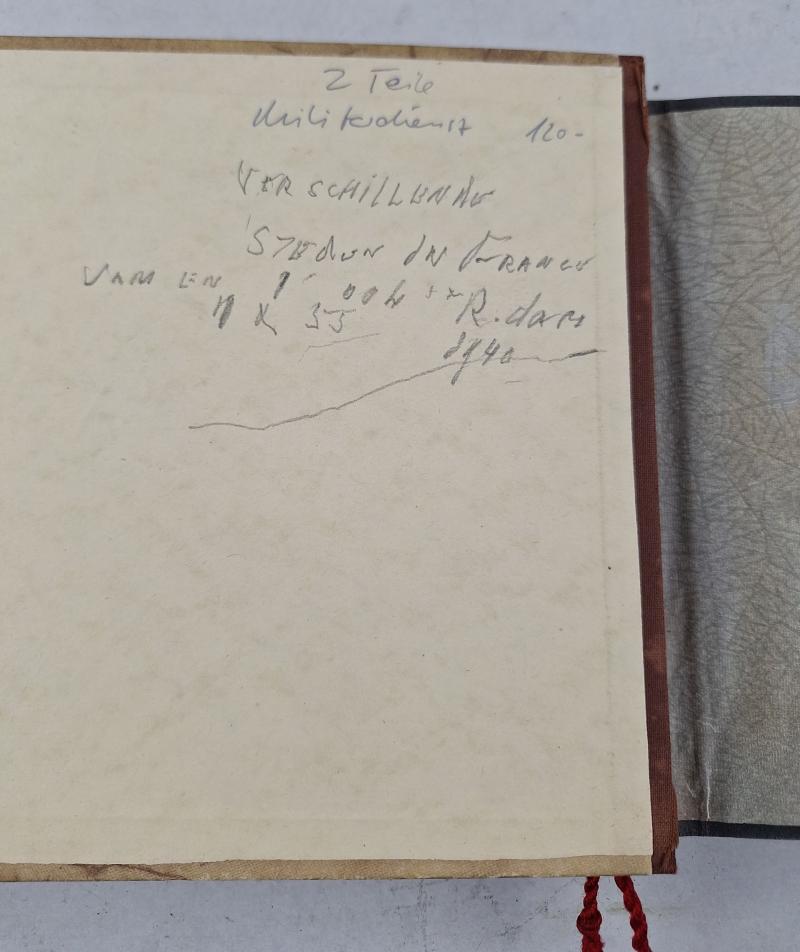 2 Teile
Militärdienst 120-
VERSCHILLENDE
STEDEN IN FRANCE
R.dam
1940